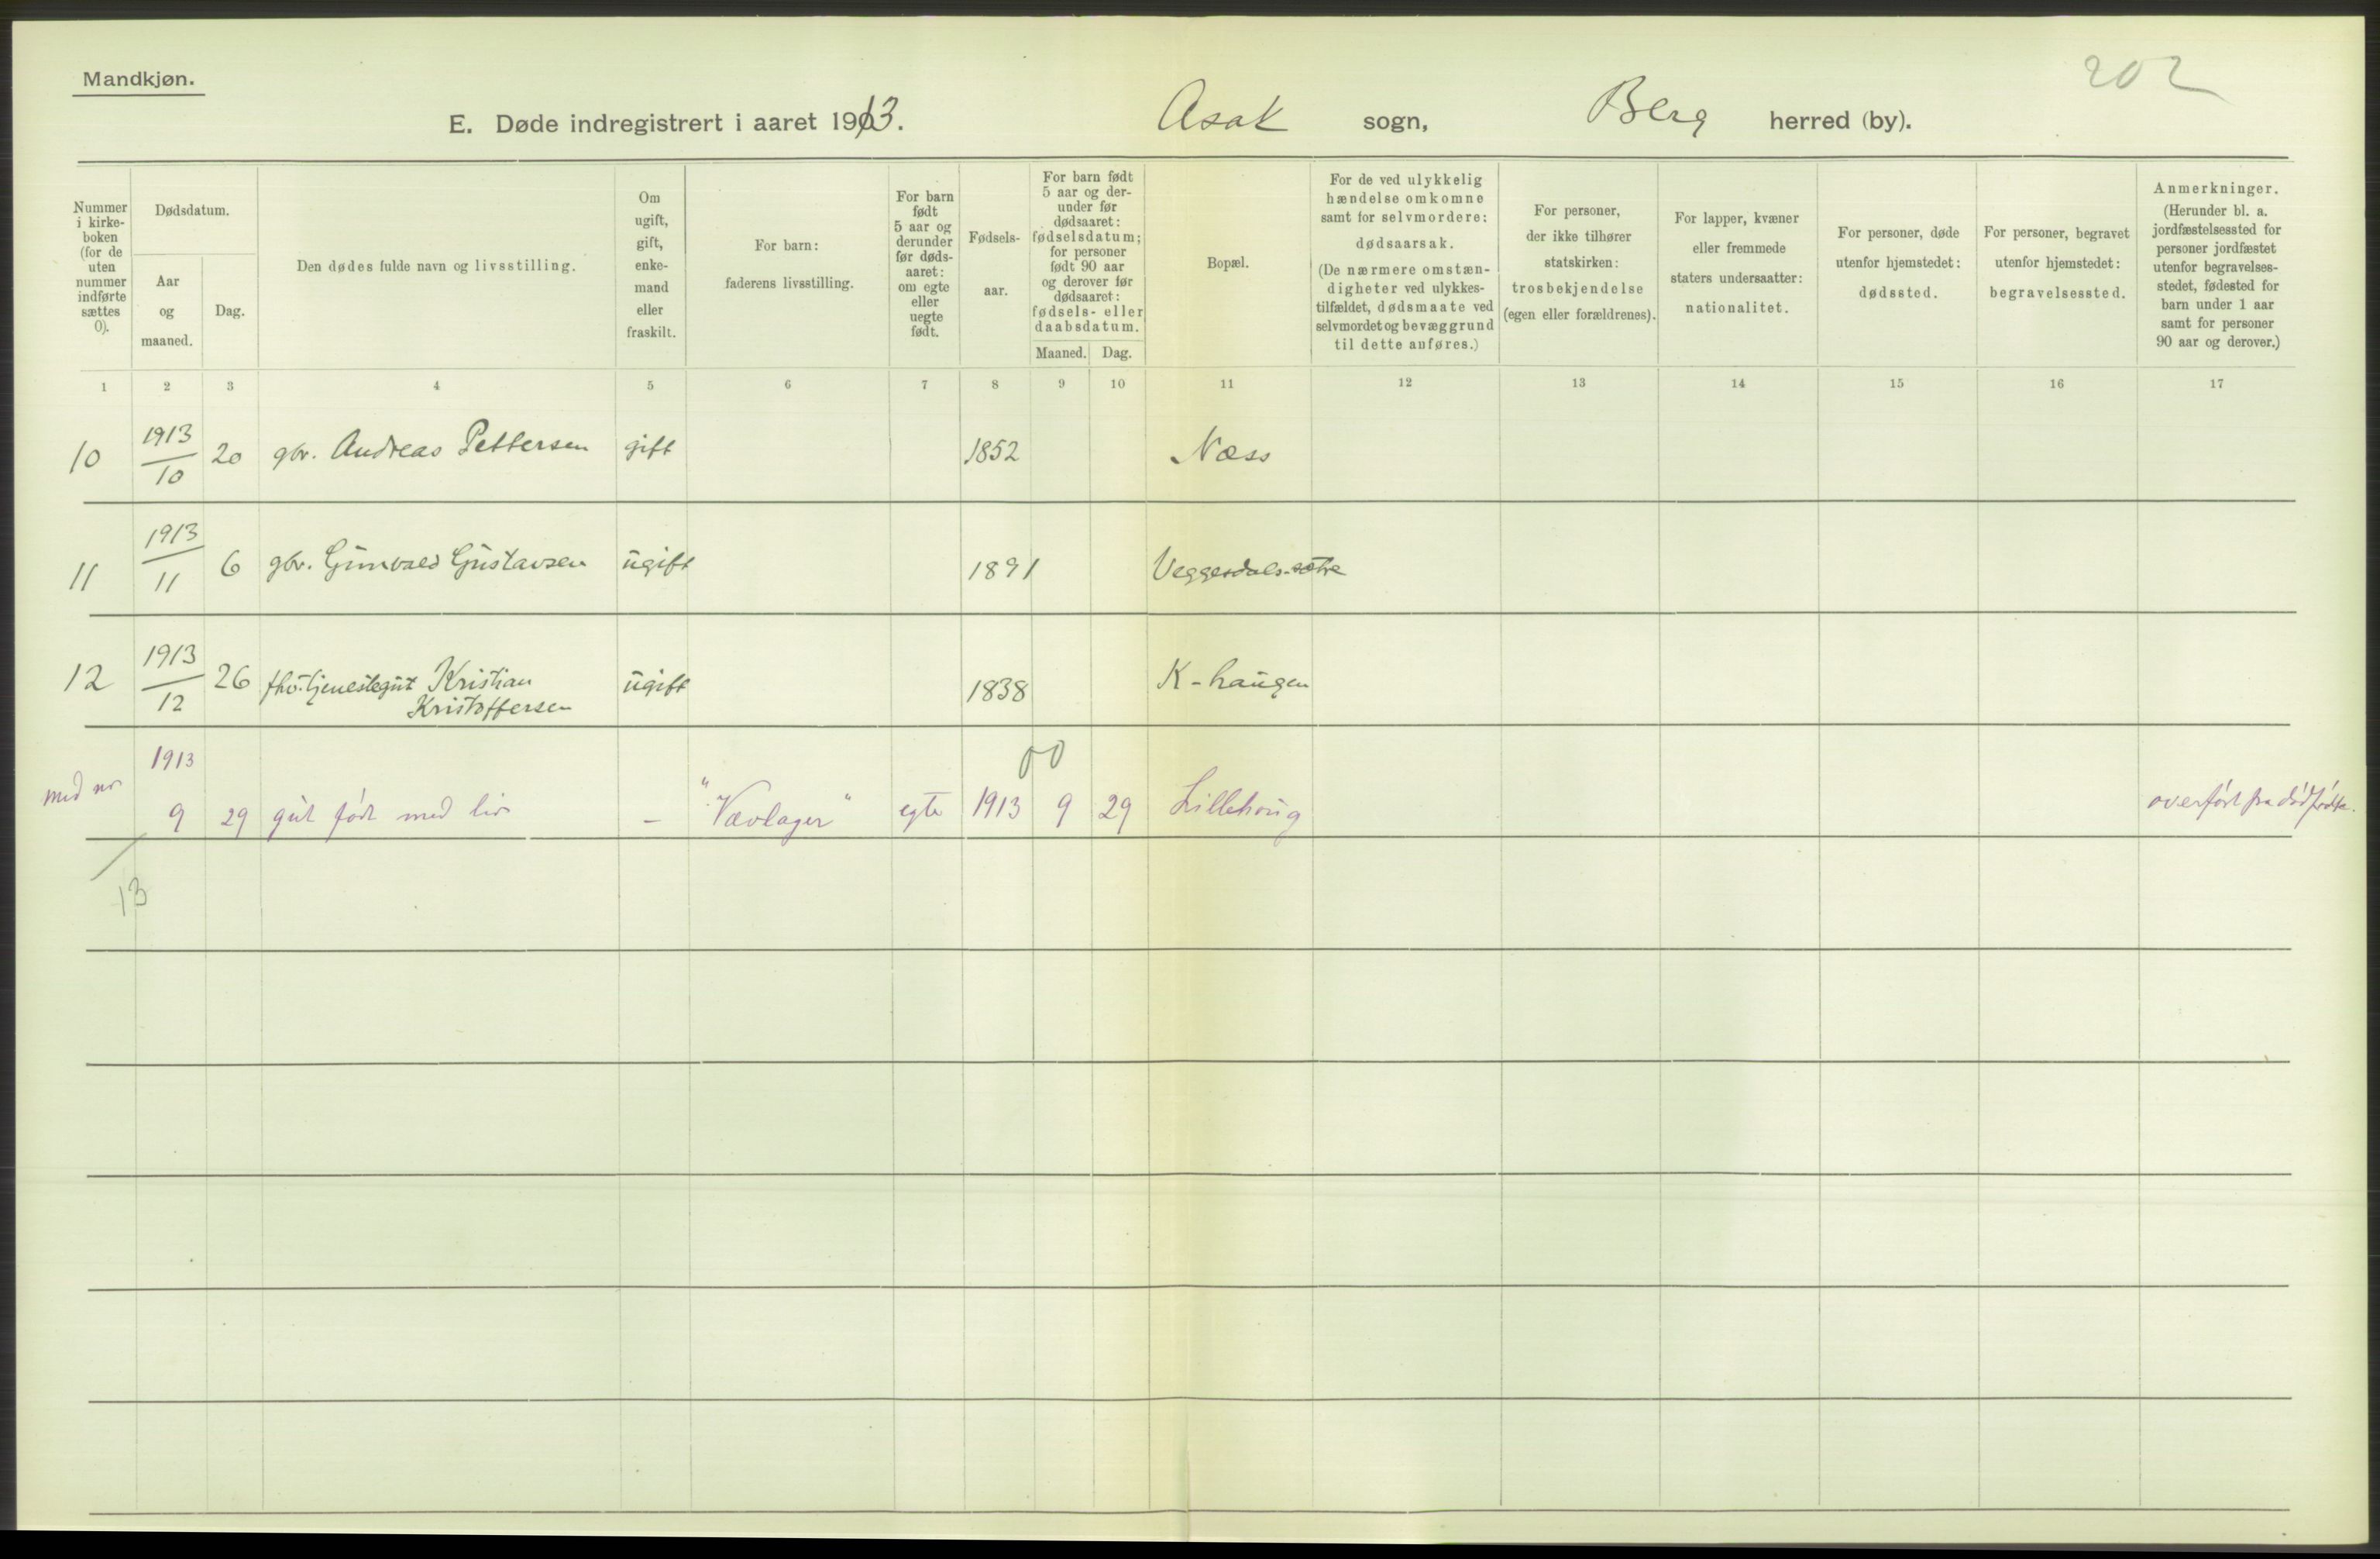 Mandkjøn.
202
E. Døde indregistrert i aaret 1913. Asak sogn, Berg herred (by).
Nummer i kirkeboken (for de uten nummer indførte sættes 0).
Dødsdatum.
Aar og maaned.
Dag.
Den dødes fulde navn og livsstilling.
Om ugift, gift, enkemand eller fraskilt.
For barn: faderens livsstilling.
For barn født 5 aar og derunder før dødsaaret: om egte eller uegte født.
Fødselsaar.
For barn født 5 aar og derunder før dødsaaret: fødselsdatum; for personer født 90 aar og derover før dødsaaret: fødsels- eller daabsdatum.
Maaned. Dag.
Bopæl.
For de ved ulykkelig hændelse omkomne samt for selvmordere: dødsaarsak. (De nærmere omstændigheter ved ulykkestilfældet, dødsmaate ved selvmordet og bevæggrund til dette anføres.)
For personer, der ikke tilhører statskirken: trosbekjendelse (egen eller forældrenes).
For lapper, kvæner eller fremmede staters undersaatter: nationalitet.
For personer, døde utenfor hjemstedet: dødssted.
For personer, begravet utenfor hjemstedet: begravelsessted.
Anmerkninger. (Herunder bl. a. jordfæstelsessted for personer jordfæstet utenfor begravelsesstedet, fødested for barn under 1 aar samt for personer 90 aar og derover.)
1 2 3 4 5 6 7 8 9 10 11 12 13 14 15 16 17
10 1913/10 20 gbr. Andreas Pettersen gift 1852 Næss
11 1913/11 6 gbr. Gunvald Gustavsen ugift 1891 Veggesdals-sætre
12 1913/12 26 fhv. tjenestegut Kristian ugift 1838 K-haugen
Kristoffersen
1913 00
9 29 gut født med liv - "Vævlager" egte 1913 9 29 Lillehoug overført fra dødfødte.
13